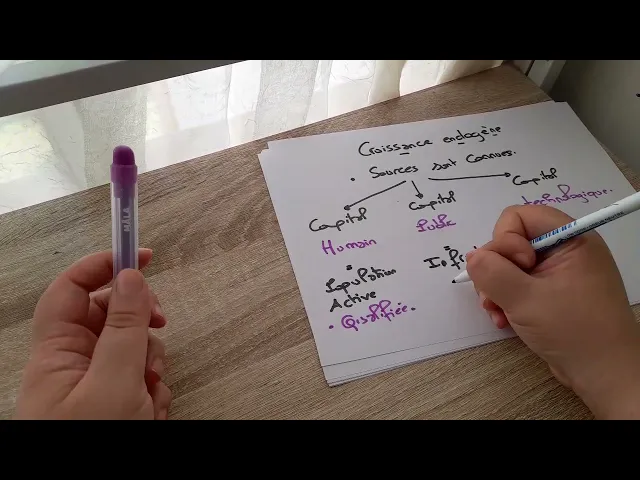 Croissance endogène
• Sources sont Connues.
Capital Capital Capital
Humain Public technologique.
Population
Active
• Qualifiée.